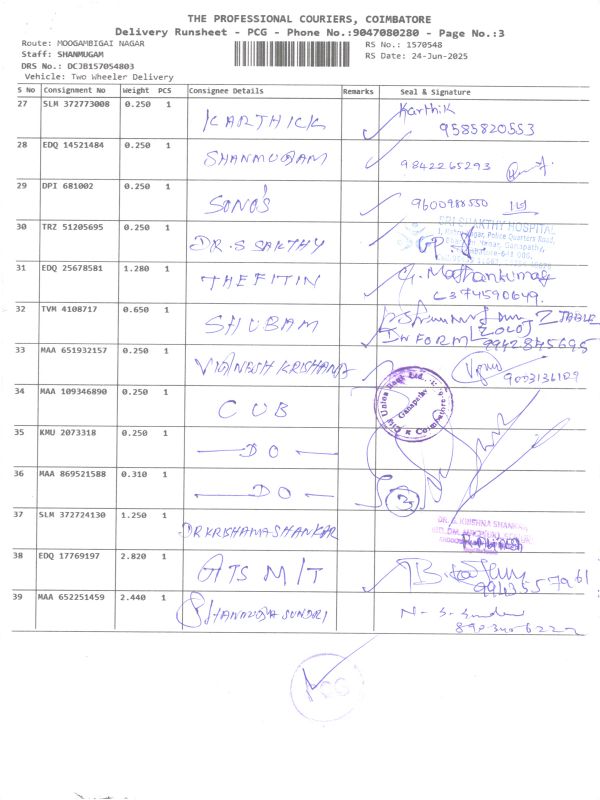 THE PROFESSIONAL COURIERS, COIMBATORE
Delivery Runsheet - PCG - Phone No.:9047080280 - Page No.:3
Route: MOOGAMBIGAI NAGAR
RS No.: 1570548
Staff: SHANMUGAM
RS Date: 24-Jun-2025
DRS No.: DCJB157054803
Vehicle: Two Wheeler Delivery
S No Consignment No Weight PCS Consignee Details Remarks Seal & Signature
27 SLM 372773008 0.250 1 KARTHICK Karthik
9585820553
28 EDQ 14521484 0.250 1 SHANMUGAM 9842265293
29 DPI 681002 0.250 1 SONO'S 9600988550
30 TRZ 51205695 0.250 1 DR.S SAKTHY GP
SRI SHAKTHY HOSPITAL
Police Quarters Road,
31 EDQ 25678581 1.280 1 THEFITIN G. Mathankumar
6374590649.
32 TVM 4108717 0.650 1 SHUBAM
INFORM
9942845695
33 MAA 651932157 0.250 1 VIGNESH KRISHANA 9003136109
34 MAA 109346890 0.250 1 CUB
Ganapathy
35 KMU 2073318 0.250 1 DO
36 MAA 869521588 0.310 1 DO 3
37 SLM 372724130 1.250 1 DR KRISHAMA SHANKAR
KRISHNA SHANKAR
38 EDQ 17769197 2.820 1 ATS M/T
39 MAA 652251459 2.440 1 SHANMUGA SUNDRI
PCG